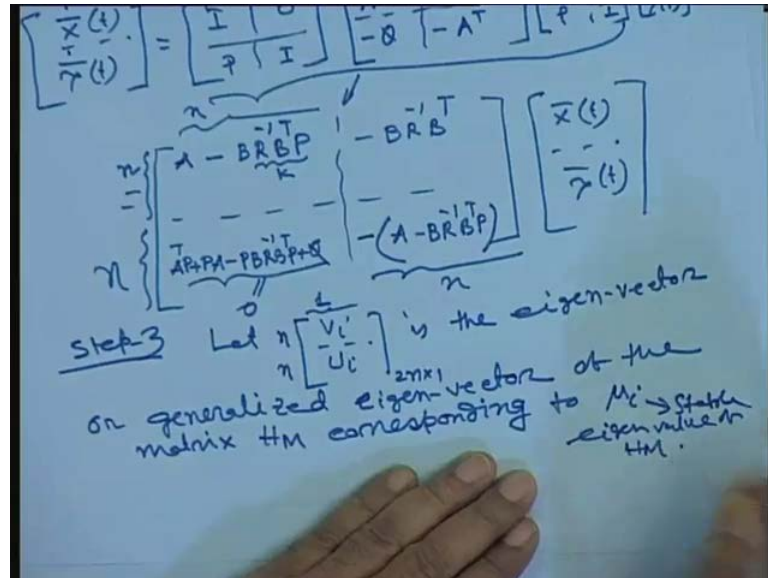 [ẋ̄(t) / γ̄̇(t)] = [I | 0 / P | I] [ / -Q | -Aᵀ] [P, I]
n
n { = [A - BR⁻¹BᵀP | - BR⁻¹Bᵀ] [x̄(t)
K
- - - - - - - - - -
n { AᵀP+PA-PBR⁻¹BᵀP+Q | -(A-BR⁻¹BᵀP)] γ̄(t)]
0 n
1
Step-3 Let n n [Vi / Ui] 2n×1 is the eigen-vector
or generalized eigen-vector of the
matrix HM corresponding to μi → Stable
eigen value of
HM.